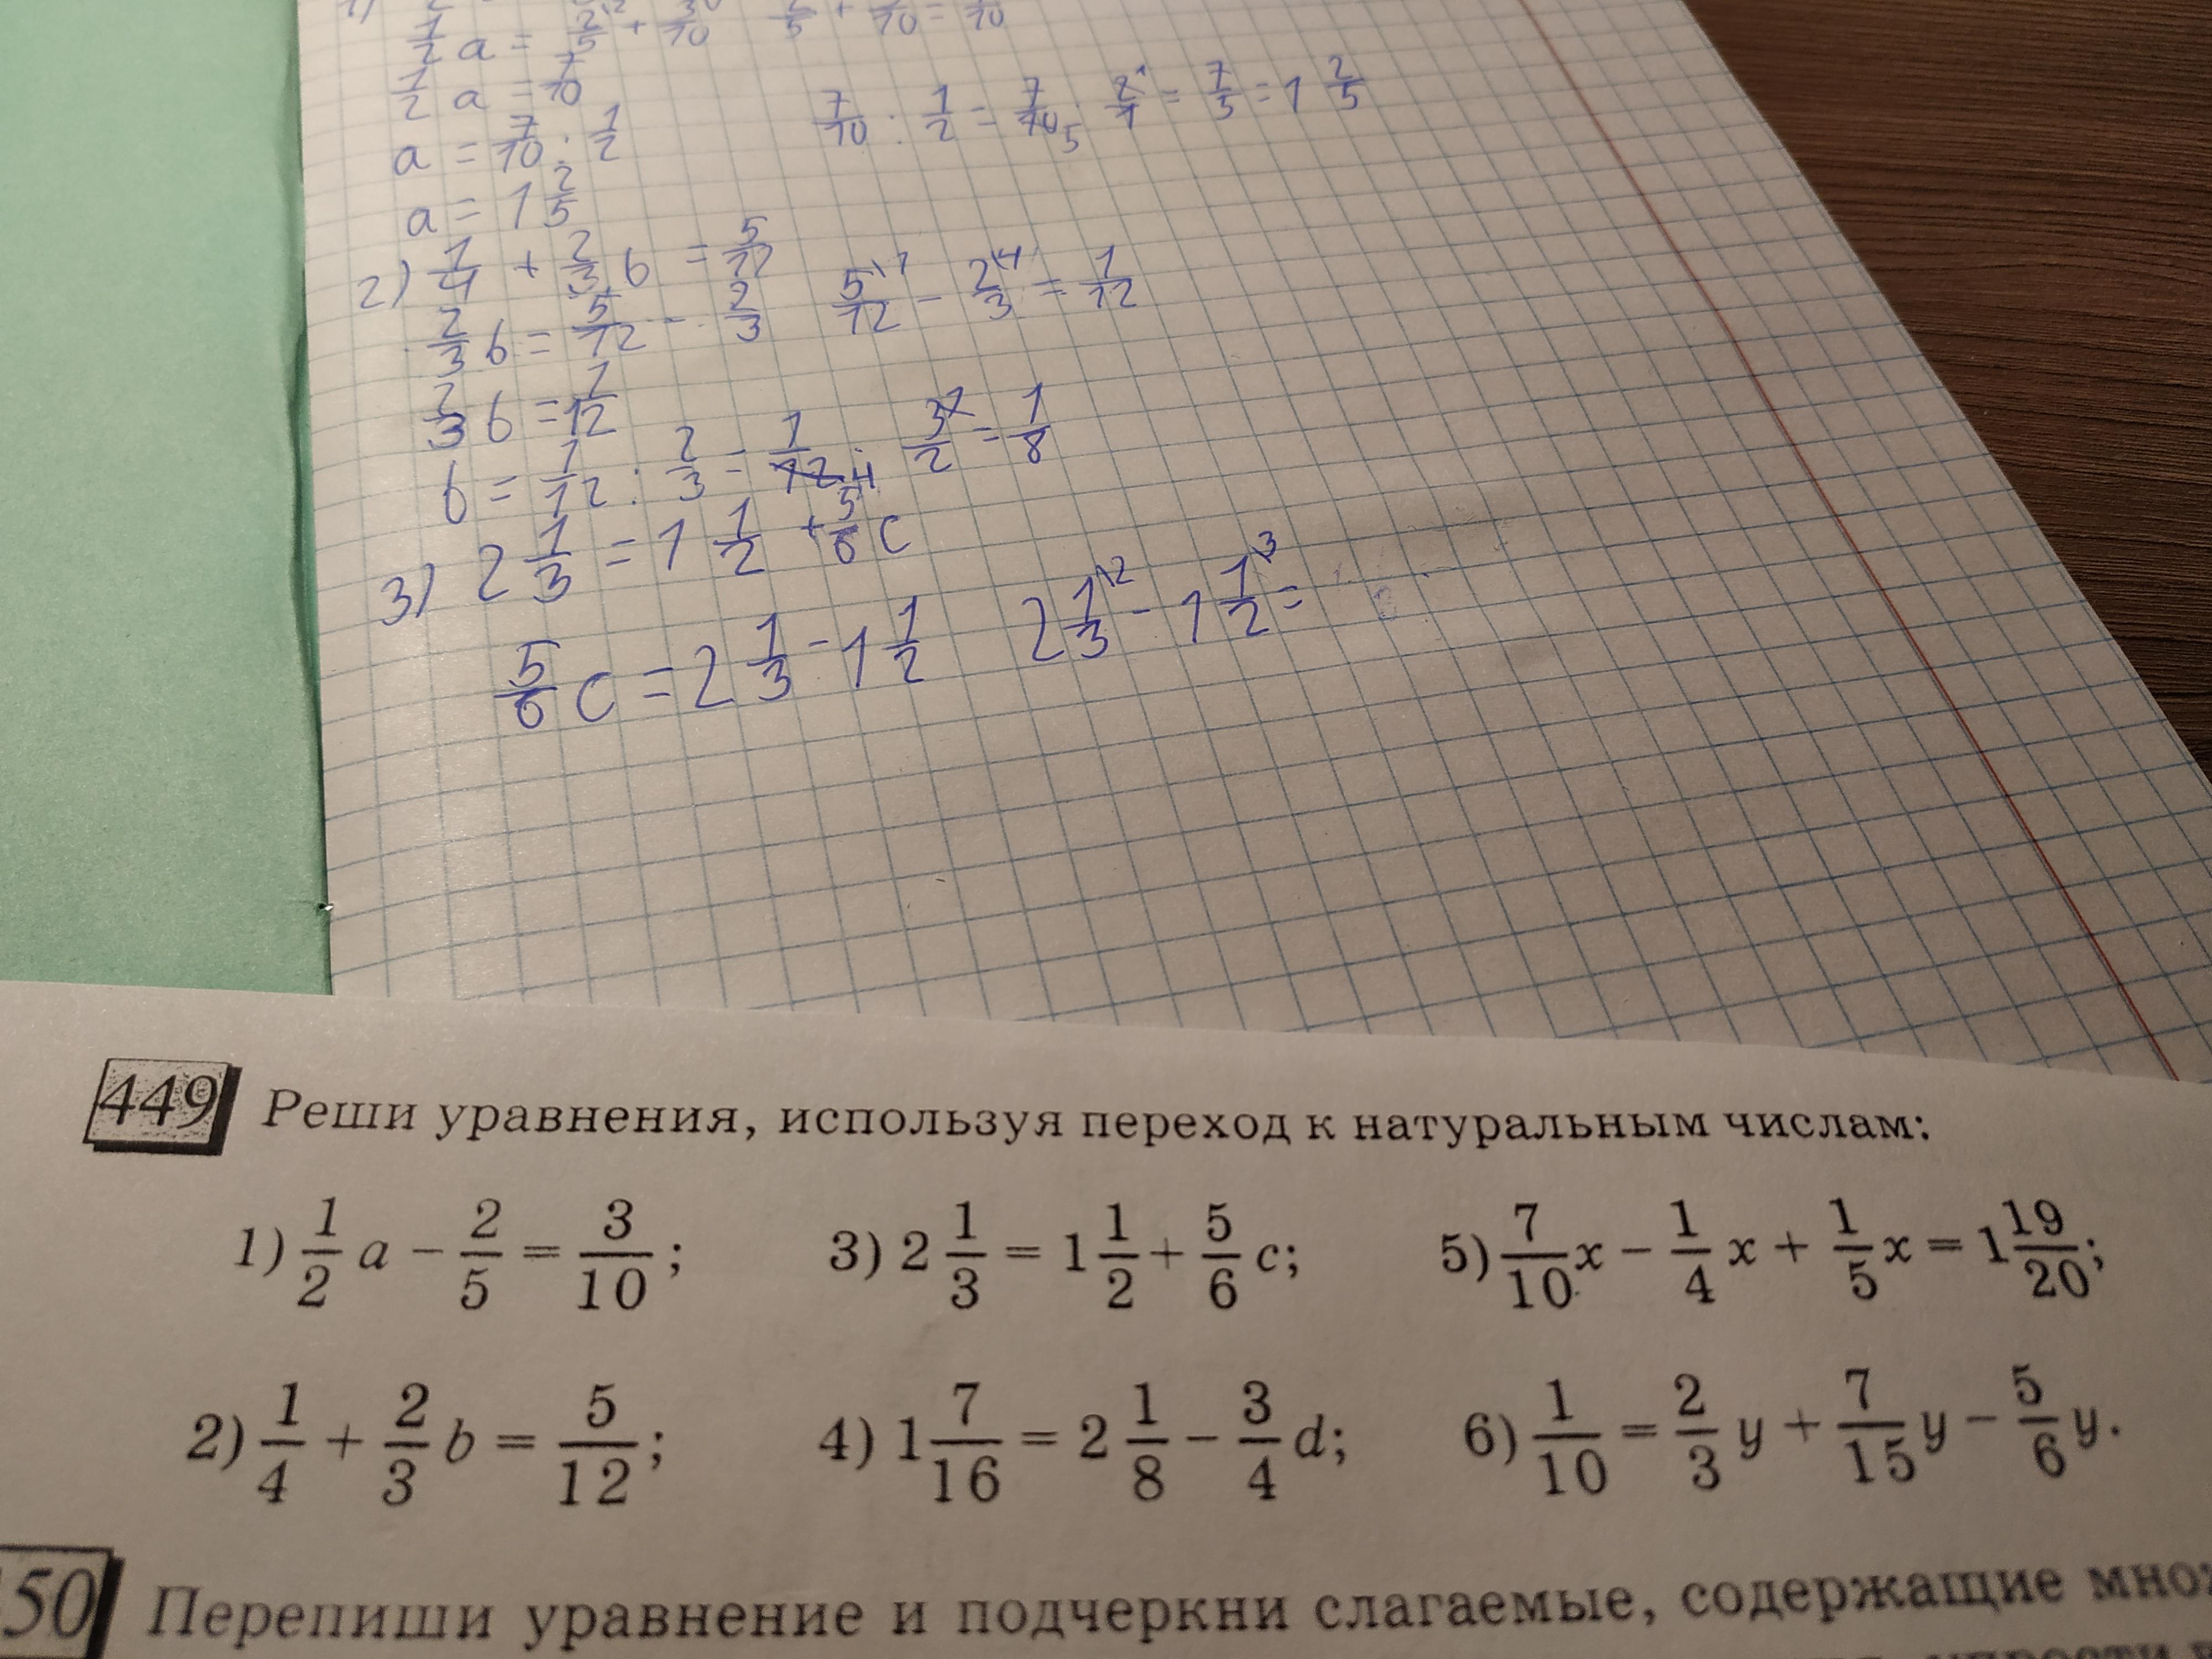 1/2 a = 2/5 + 3/10   2/5 + 3/10 = 7/10
1/2 a = 7/10
a = 7/10 : 1/2   7/10 : 1/2 = 7/10 · 2/1 = 7/5 = 1 2/5
a = 1 2/5
2) 1/4 + 2/3 b = 5/12
2/3 b = 5/12 - 2/3   5/12 - 2/3 = 1/12
2/3 b = 1/12
b = 1/12 : 2/3 = 1/12 · 3/2 = 1/8
3) 2 1/3 = 1 1/2 + 5/6 c
5/6 c = 2 1/3 - 1 1/2   2 1/3 - 1 1/2 =
449 Реши уравнения, используя переход к натуральным числам:
1) 1/2 a − 2/5 = 3/10; 3) 2 1/3 = 1 1/2 + 5/6 c; 5) 7/10 x − 1/4 x + 1/5 x = 1 19/20;
2) 1/4 + 2/3 b = 5/12; 4) 1 7/16 = 2 1/8 − 3/4 d; 6) 1/10 = 2/3 y + 7/15 y − 5/6 y.
50 Перепиши уравнение и подчеркни слагаемые, содержащие